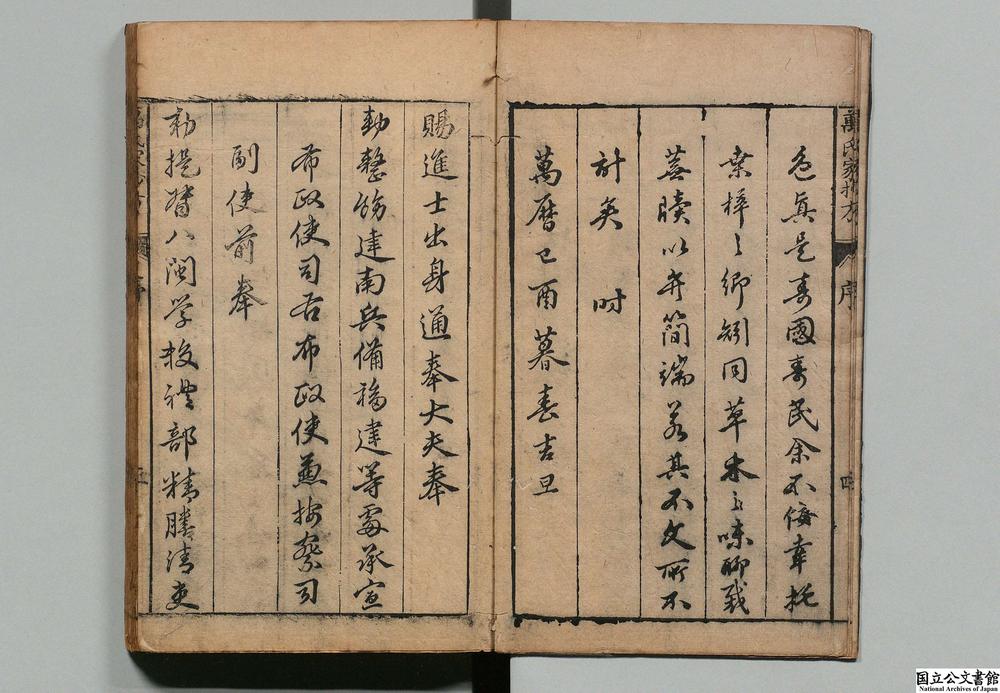 萬氏家抄方 序 四
色真是壽國壽民余不佞幸托
桑梓之鄉矧同草木之味聊裁
蕪牘以弁簡端若其不文所不
計矣時
萬曆己酉暮春吉旦
賜進士出身通奉大夫奉
勅整飭建南兵備福建等處承宣
布政使司右布政使兼按察司
副使前奉
勅提督八閩學校禮部精膳清吏
序 五
国立公文書館
National Archives of Japan